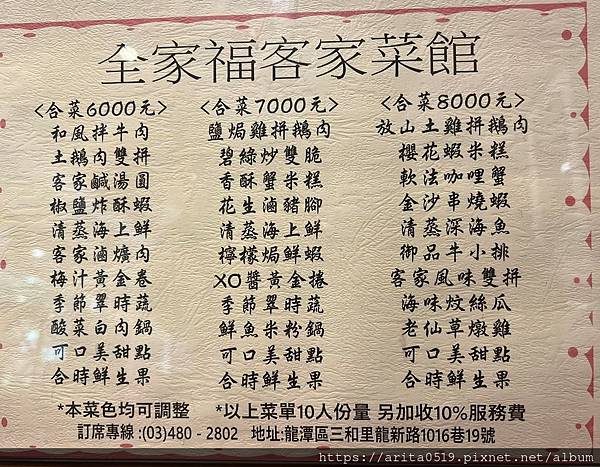 全家福客家菜館
<合菜6000元>
和風拌牛肉
土鵝肉雙拼
客家鹹湯圓
椒鹽炸酥蝦
清蒸海上鮮
客家滷爌肉
梅汁黃金卷
季節翠時蔬
酸菜白肉鍋
可口美甜點
合時鮮生果
<合菜7000元>
鹽焗雞拼鵝肉
碧綠炒雙脆
香酥蟹米糕
花生滷豬腳
清蒸海上鮮
檸檬焗鮮蝦
XO醬黃金捲
季節翠時蔬
鮮魚米粉鍋
可口美甜點
合時鮮生果
<合菜8000元>
放山土雞拼鵝肉
櫻花蝦米糕
軟法咖哩蟹
金沙串燒蝦
清蒸深海魚
御品牛小排
客家風味雙拼
海味炆絲瓜
老仙草燉雞
可口美甜點
合時鮮生果
*本菜色均可調整 *以上菜單10人份量 另加收10%服務費
訂席專線:(03)480-2802 地址:龍潭區三和里龍新路1016巷19號
https://arita0519.pixnet.net/album